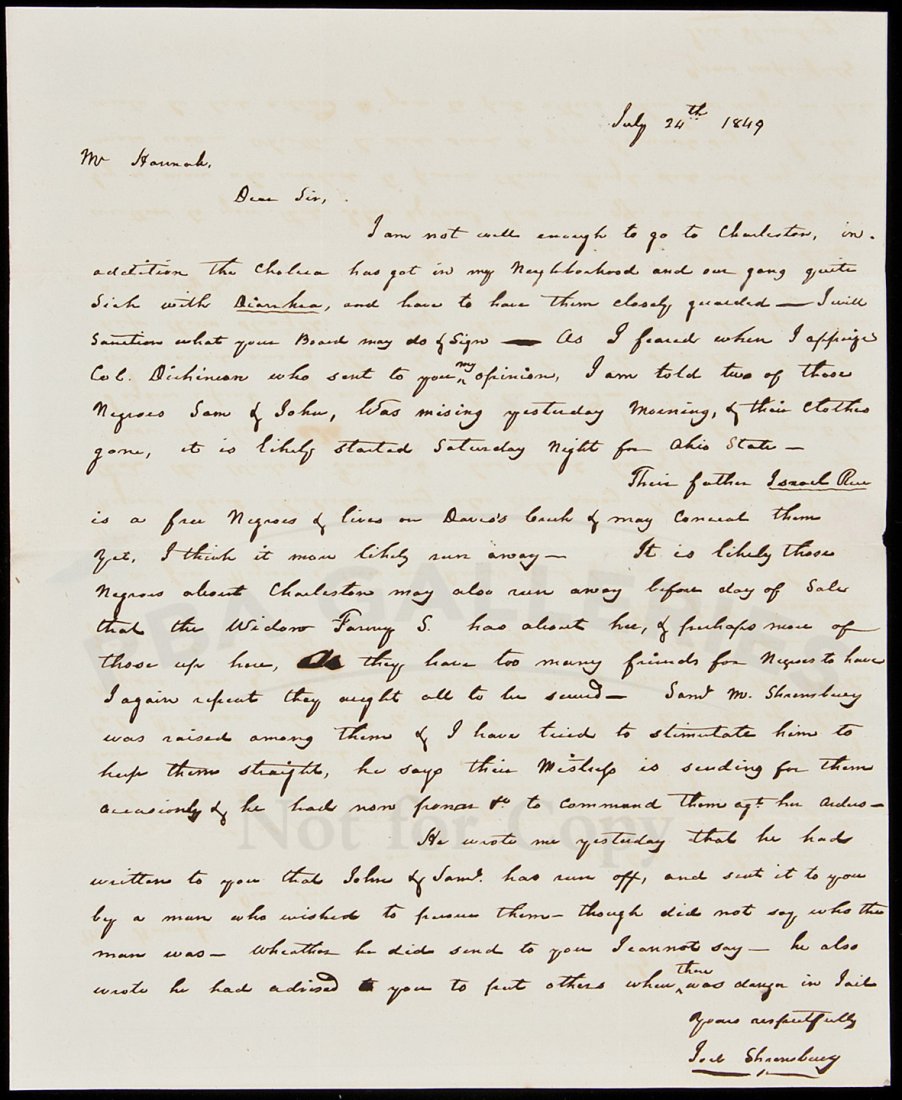 July 24th 1849
Mr Hannah,
Dear Sir,
I am not well enough to go to Charleston, in-
addition the Cholera has got in my Neighborhood and our gang quite
Sick with Diarrhea, and have to have them closely guarded — I will
Sanction what your Board may do & Sign — As I feared when I apprize
Col. Dickinson who sent to you my opinion, I am told two of those
Negroes Sam & John, Was mising yesterday Morning, & their clothes
gone, it is likely started Saturday Night for Ohio State —
Their father Israel
is a free Negroes & lives on Davis's Creek & may Conceal them
Yet, I think it more likely run away — It is likely those
Negroes about Charleston may also run away before day of Sale
that the Widow Fanny S. has about her, & perhaps more of
those up here, they have too many friends for Negroes to have
I again repeat they ought all to be secured — Saml M. Shrewsbury
was raised among them & I have tried to stimulate him to
keep them straight, he says their Mistress is sending for them
occasionly & he had non power to command them agt her orders —
He wrote me yesterday that he had
written to you that John & Saml. has run off, and sent it to you
by a man who wished to persue them — though did not say who the
man was — wheather he did send to you I cannot say — he also
wrote he had advised you to put others when there was danger in Jail
Yours respectfully
Joel Shrewsbury
PBA GALLERIES
Not for Copy